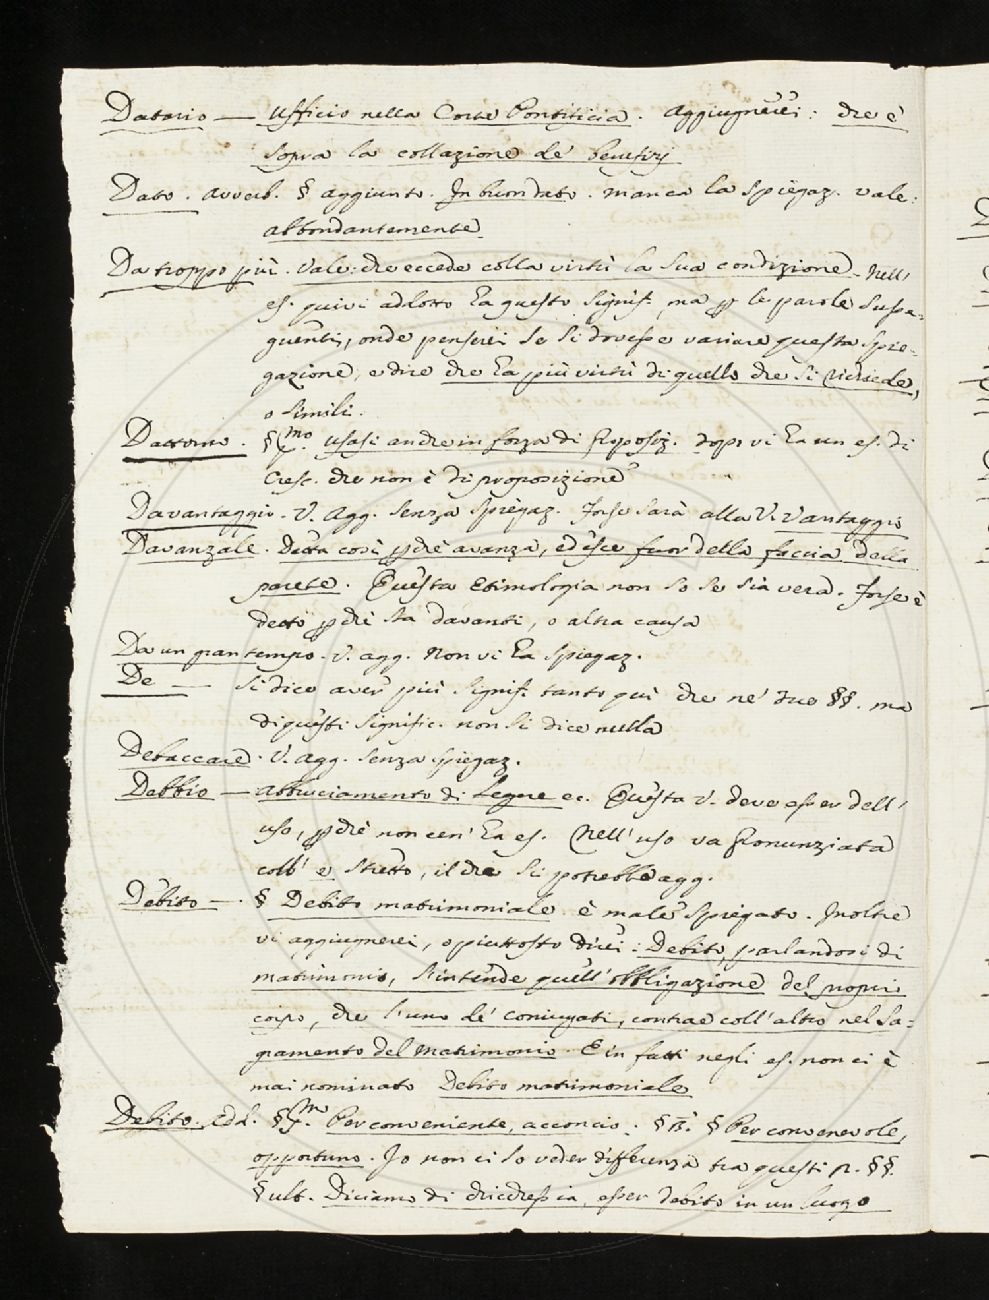 Datario — Ufficio nella Corte Pontificia. Aggiugnerei: che è
sopra la collazione de' benefizj
Dato. avverb. § aggiunto. In buon dato. manca la spiegaz. vale:
abbondantemente
Da troppo più. Vale: che eccede colla virtù la sua condizione. Nell'
es. quivi addotto ha questo signif. ma p le parole susse-
guenti, onde penserei se si dovesse variare questa spie-
gazione, e dire che ha più virtù di quello che si richiede,
o simili.
Dattorno. § mo usasi anche in forza di proposiz. dopo vi ha un es. di
Cresc. che non è di proposizione
Davantaggio. V. Agg. senza spiegaz. Forse sarà alla V. Vantaggio
Davanzale. Detta così pchè avanza, ed esce fuor della faccia della
parete. Questa etimologia non so se sia vera. Forse è
detto pchè sta davanti, o altra causa
Da un gran tempo. V. agg. Non vi ha spiegaz.
De — si dice aver più signif. tanto quì che ne' due §§. ma
di questi signific. non si dice nulla
Debaccare. V. Agg. senza spiegaz.
Debbio — Abbruciamento di legne ec. Questa V. deve esser dell'
uso, pchè non cen' ha es. Nell' uso va pronunziata
coll' e stretto, il che si potrebbe agg.
Debito —. § Debito matrimoniale è male spiegato. Inoltre
vi aggiugnerei, o piuttosto direi: Debito, parlandosi di
matrimonio, s'intende quell' obbligazione del proprio
corpo, che l'uno de' coniugati, contrae coll' altro nel Sa-
gramento del Matrimonio. E in fatti negli es. non ci è
mai nominato Debito matrimoniale
Debito. Add. § mo Per conveniente, acconcio. § § Per convenevole,
opportuno. Io non ci so veder differenza tra questi §§.
§ ult. Diciamo di chicchessia, esser debito in un luogo